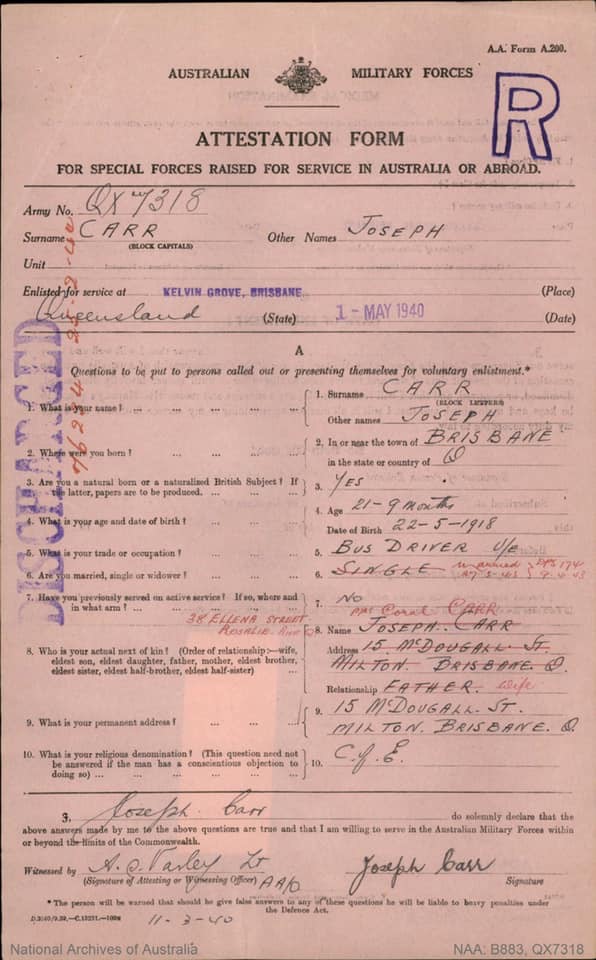 A.A. Form A.200.
AUSTRALIAN MILITARY FORCES
R
ATTESTATION FORM
FOR SPECIAL FORCES RAISED FOR SERVICE IN AUSTRALIA OR ABROAD.
Army No. QX7318
Surname CARR Other Names JOSEPH
(BLOCK CAPITALS)
Unit
Enlisted for service at KELVIN GROVE, BRISBANE. (Place)
Queensland (State) 1 - MAY 1940 (Date)
DISCHARGED
A
Questions to be put to persons called out or presenting themselves for voluntary enlistment.*
1. What is your name? ... ... ... ... 1. Surname CARR
(BLOCK LETTERS)
Other names JOSEPH
2. Where were you born? ... ... ... 2. In or near the town of BRISBANE
in the state or country of Q
3. Are you a natural born or a naturalized British Subject? If the latter, papers are to be produced. ... ... ... 3. YES
4. What is your age and date of birth? ... ... 4. Age 21-9 months
Date of Birth 22-5-1918
5. What is your trade or occupation? ... ... 5. BUS DRIVER U/E
6. Are you married, single or widower? ... ... 6. SINGLE married
7. Have you previously served on active service? If so, where and in what arm? ... ... ... ... 7. NO
38 ELLENA STREET
ROSALIE
Mrs Coral CARR
8. Who is your actual next of kin? (Order of relationship:—wife, eldest son, eldest daughter, father, mother, eldest brother, eldest sister, eldest half-brother, eldest half-sister) ... 8. Name JOSEPH. CARR
Address 15 McDOUGALL ST.
MILTON BRISBANE Q.
Relationship FATHER. wife
9. What is your permanent address? ... ... 9. 15 McDOUGALL. ST.
MILTON. BRISBANE. Q.
10. What is your religious denomination? (This question need not be answered if the man has a conscientious objection to doing so) ... ... ... ... ... 10. C of E.
I, Joseph. Carr do solemnly declare that the
above answers made by me to the above questions are true and that I am willing to serve in the Australian Military Forces within
or beyond the limits of the Commonwealth.
Witnessed by Lt Joseph Carr
(Signature of Attesting or Witnessing Officer) AAO Signature
* The person will be warned that should he give false answers to any of these questions he will be liable to heavy penalties under
the Defence Act.
11-3-40
National Archives of Australia NAA: B883, QX7318